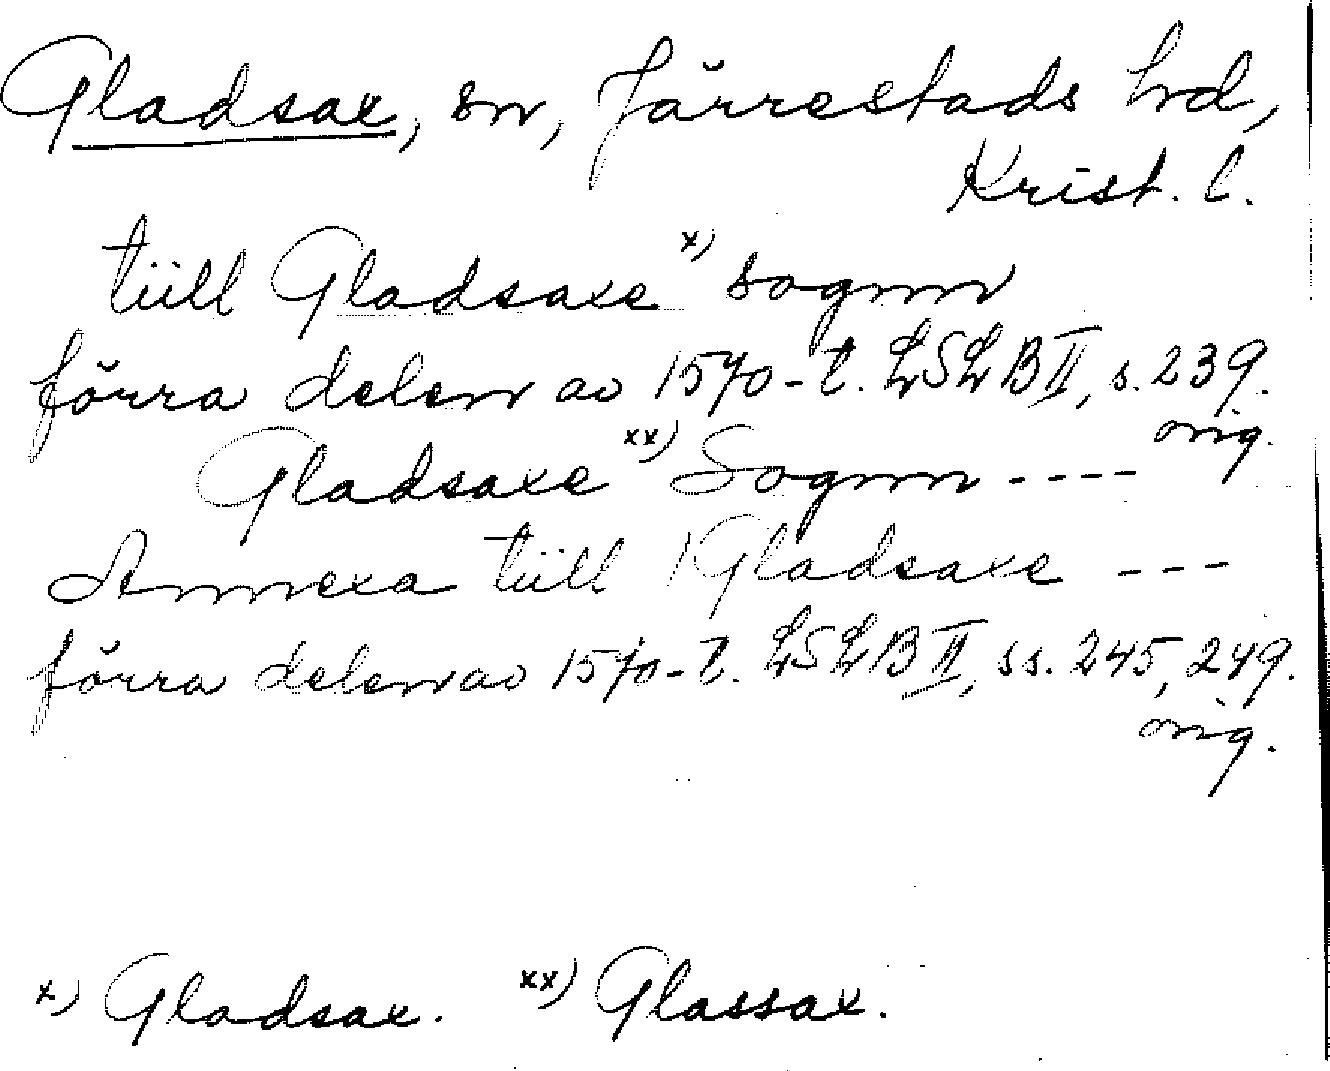 Gladsax, sn, Järrestads hd,
Krist. l.
tiill Gladsaxe x) sognn
förra delen av 1570-t. LSLB II, s. 239.
orig.
Gladsaxe xx) Sognn ----
Annexa tiill Gladsaxe ---
förra delen av 1570-t. LSLB II, ss. 245, 249.
orig.
x) Gladsax. xx) Glassax.